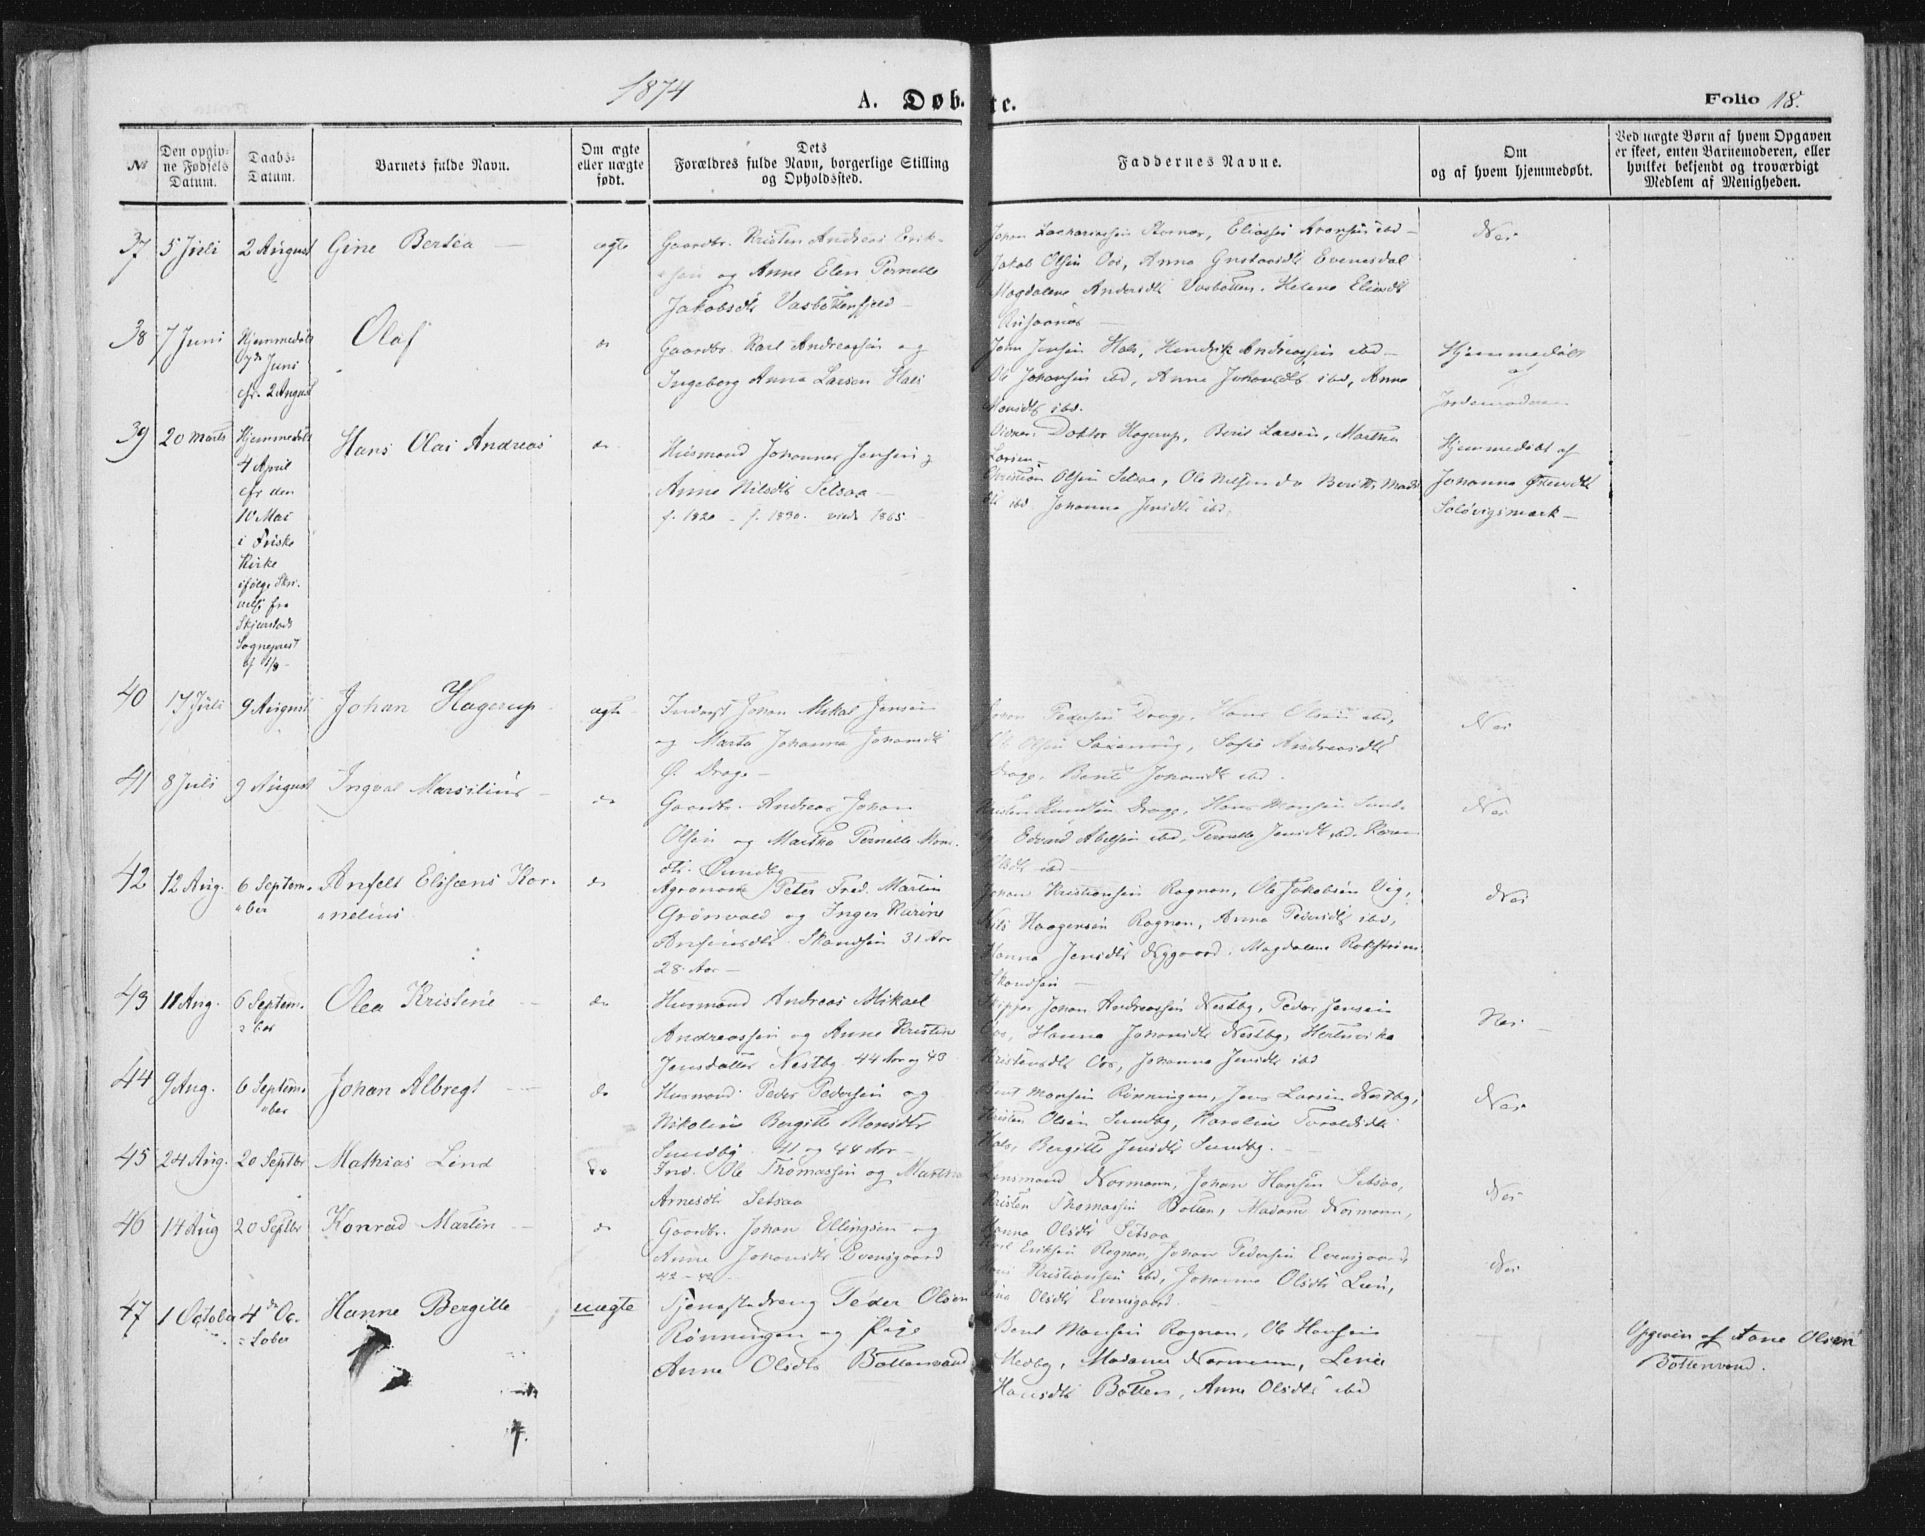 1874
A. Døbte.
Folio 18.
No
Den opgivne Fødsels Datum.
Daabs-Datum.
Barnets fulde Navn.
Om ægte eller uægte født.
Dets Forældres fulde Navn, borgerlige Stilling og Opholdssted.
Faddernes Navne.
Om og af hvem hjemmedøbt.
Ved uægte Børn af hvem Opgaven er skeet, enten Barnemoderen, eller hvilket bekjendt og troværdigt Medlem af Menigheden.
37 5 Juli 2 August Gine Bertea ægte
Gaardbr. Kristen Andreas Erik-
sen og Anne Elen Pernelle
Jakobsdtr Vasbottenfjeld
Johan Zachariassen Stornes, Elias Aronsen ibd
Jakob Olsen Os, Anna Gustavsdtr Evenesdal
Magdalene Andersdtr Vasbotten, Helene Eliasdtr
Nei
38 7 Juni Hjemmedøbt
7de Juni
cfr. 2 August
Olaf
do
Gaardbr. Karl Andreassen og
Ingeborg Anna Larsen Hals
John Jensen Hals, Hendrik Andreassen ibd
Ole Johansen ibd, Anne Johansdtr ibd, Anne
Monsdtr ibd.
Hjemmedøbt
af
Jordemoderen
39 20 Marts Hjemmedøbt
4 April
cfr den
10 Mai
i Friske
Kirke
ifølge Skri-
velse fra
Skjerstads
Sognepræst
af 11/8
Hans Olai Andreas
do
Husmand Johannes Jensen og
Anne Nilsdtr Setsaa
f. 1820 - f. 1830. viede 1865
Doktor Hagerup, Berit Larsen, Martha
Larsen
Christian Olsen Setsaa, Ole Nilsen do Berith Mads-
dtr ibd Johanna Jensdtr ibd.
Hjemmedøbt af
Johanna
Solvigsmark
40 17 Juli 9 August Johan Hagerup ægte
Inderst Johan Mikal Jensen
og Marta Johanna Johansdtr
Ø. Drage
Johan Pedersen Drage, Hans Olsen ibd,
Ole Olsen Saxenvig, Sofie Andreasdtr
Drage, Berit Johansdtr ibd.
Nei
41 8 Juli 9 August Ingval Marsilius do
Gaardbr. Andreas Johan
Olsen og Martha Pernelle Mons-
dtr. Sundby
Kristen Knudsen Drage, Hans Monsen Sund-
by, Edvard Abelsen ibd, Pernelle Jensdtr ibd, Karen
Olsdtr ibd
Nei
42 12 Aug. 6 Septem-
ber
Anfelt Elisæus Kor-
nelius
do
Agronom Peter Fred. Martin
Grönvold og Inger Karine
Skandsen 31 Aar
28 Aar
Johan Kristiansen Rognan, Ole Jakobsen Vig,
Nils Haagensen Rognan, Anna Pedersdtr ibd,
Hanna Jensdtr Nygaard, Magdalene
Skandsen
Nei
43 11 Aug. 6 Septem-
ber
Olea Kristine do
Husmand Andreas Mikael
Andreassen og Anne Kristine
Jensdatter Nestby 44 Aar og 43
Skipper Johan Andreassen Nestby, Peder Jensen
Os, Hanna Johansdtr Nestby, Hertevika
Kristensdtr Os, Johanna Jensdtr ibd
Nei
44 9 Aug. 6 Septem-
ber
Johan Albregt do
Husmand Peder Pedersen og
Nikoline Bergitte Monsdtr
Sundby 41 og 44 Aar
Bent Monsen Rönningen, Jens Larsen Nestby,
Kristen Olsen Sundby, Karoline Toraldsdtr
Hals, Bergitte Jensdtr Sundby.
Nei
45 24 Aug. 20 Septbr Mathias Lind do
Ind. Ole Thomassen og Martha
Arnesdtr Setsaa
Lensmand Normann, Johan Hansen Setsaa,
Kristen Thomassen Botten, Madam Normann,
Hanna Olsdtr Setsaa
Nei
46 14 Aug 20 Septbr Konrad Martin do
Gaardbr. Johan Ellingsen og
Anne Johansdtr Evensgaard
42 - 42
Karl Eriksen Rognan, Johan Pedersen Evensgaard,
Kristiansen ibd, Johanna Olsdtr Lien,
Olsdtr Evensgaard.
Nei
47 1 October 4de Oc-
tober
Hanne Bergitte uægte
Tjenestedreng Peder Olsen
Rönningen og Pige
Anne Olsdtr Bottenvand
Bent Monsen Rognan, Ole Hansen
Medby, Madame Normann, Lene
Hansdtr Botten, Anne Olsdtr ibd
Opgiven af Aane Olsen
Bottenvand.